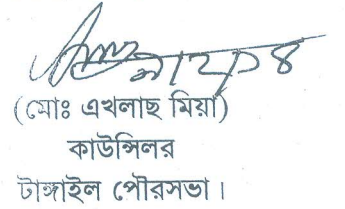 (মোঃ এখলাছ মিয়া)
কাউন্সিলর
টাঙ্গাইল পৌরসভা।